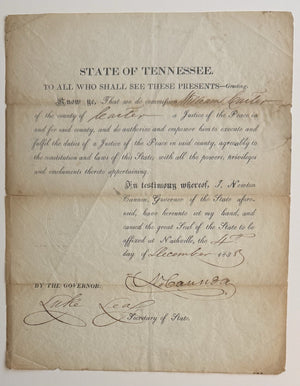 STATE OF TENNESSEE.
TO ALL WHO SHALL SEE THESE PRESENTS—Greeting.
Know ye, That we do commission William Carter
of the county of Carter a Justice of the Peace in
and for said county, and do authorise and empower him to execute and
fulfil the duties of a Justice of the Peace in said county, agreeably to
the constitution and laws of this State, with all the powers, privileges
and emoluments thereto appertaining.
In testimony whereof, I, Newton
Cannon, Governor of the State afore-
said, have hereunto set my hand, and
caused the great Seal of the State to be
affixed at Nashville, the 4th
day of December 183
N. Cannon
BY THE GOVERNOR:
Luke Lea
Secretary of State.